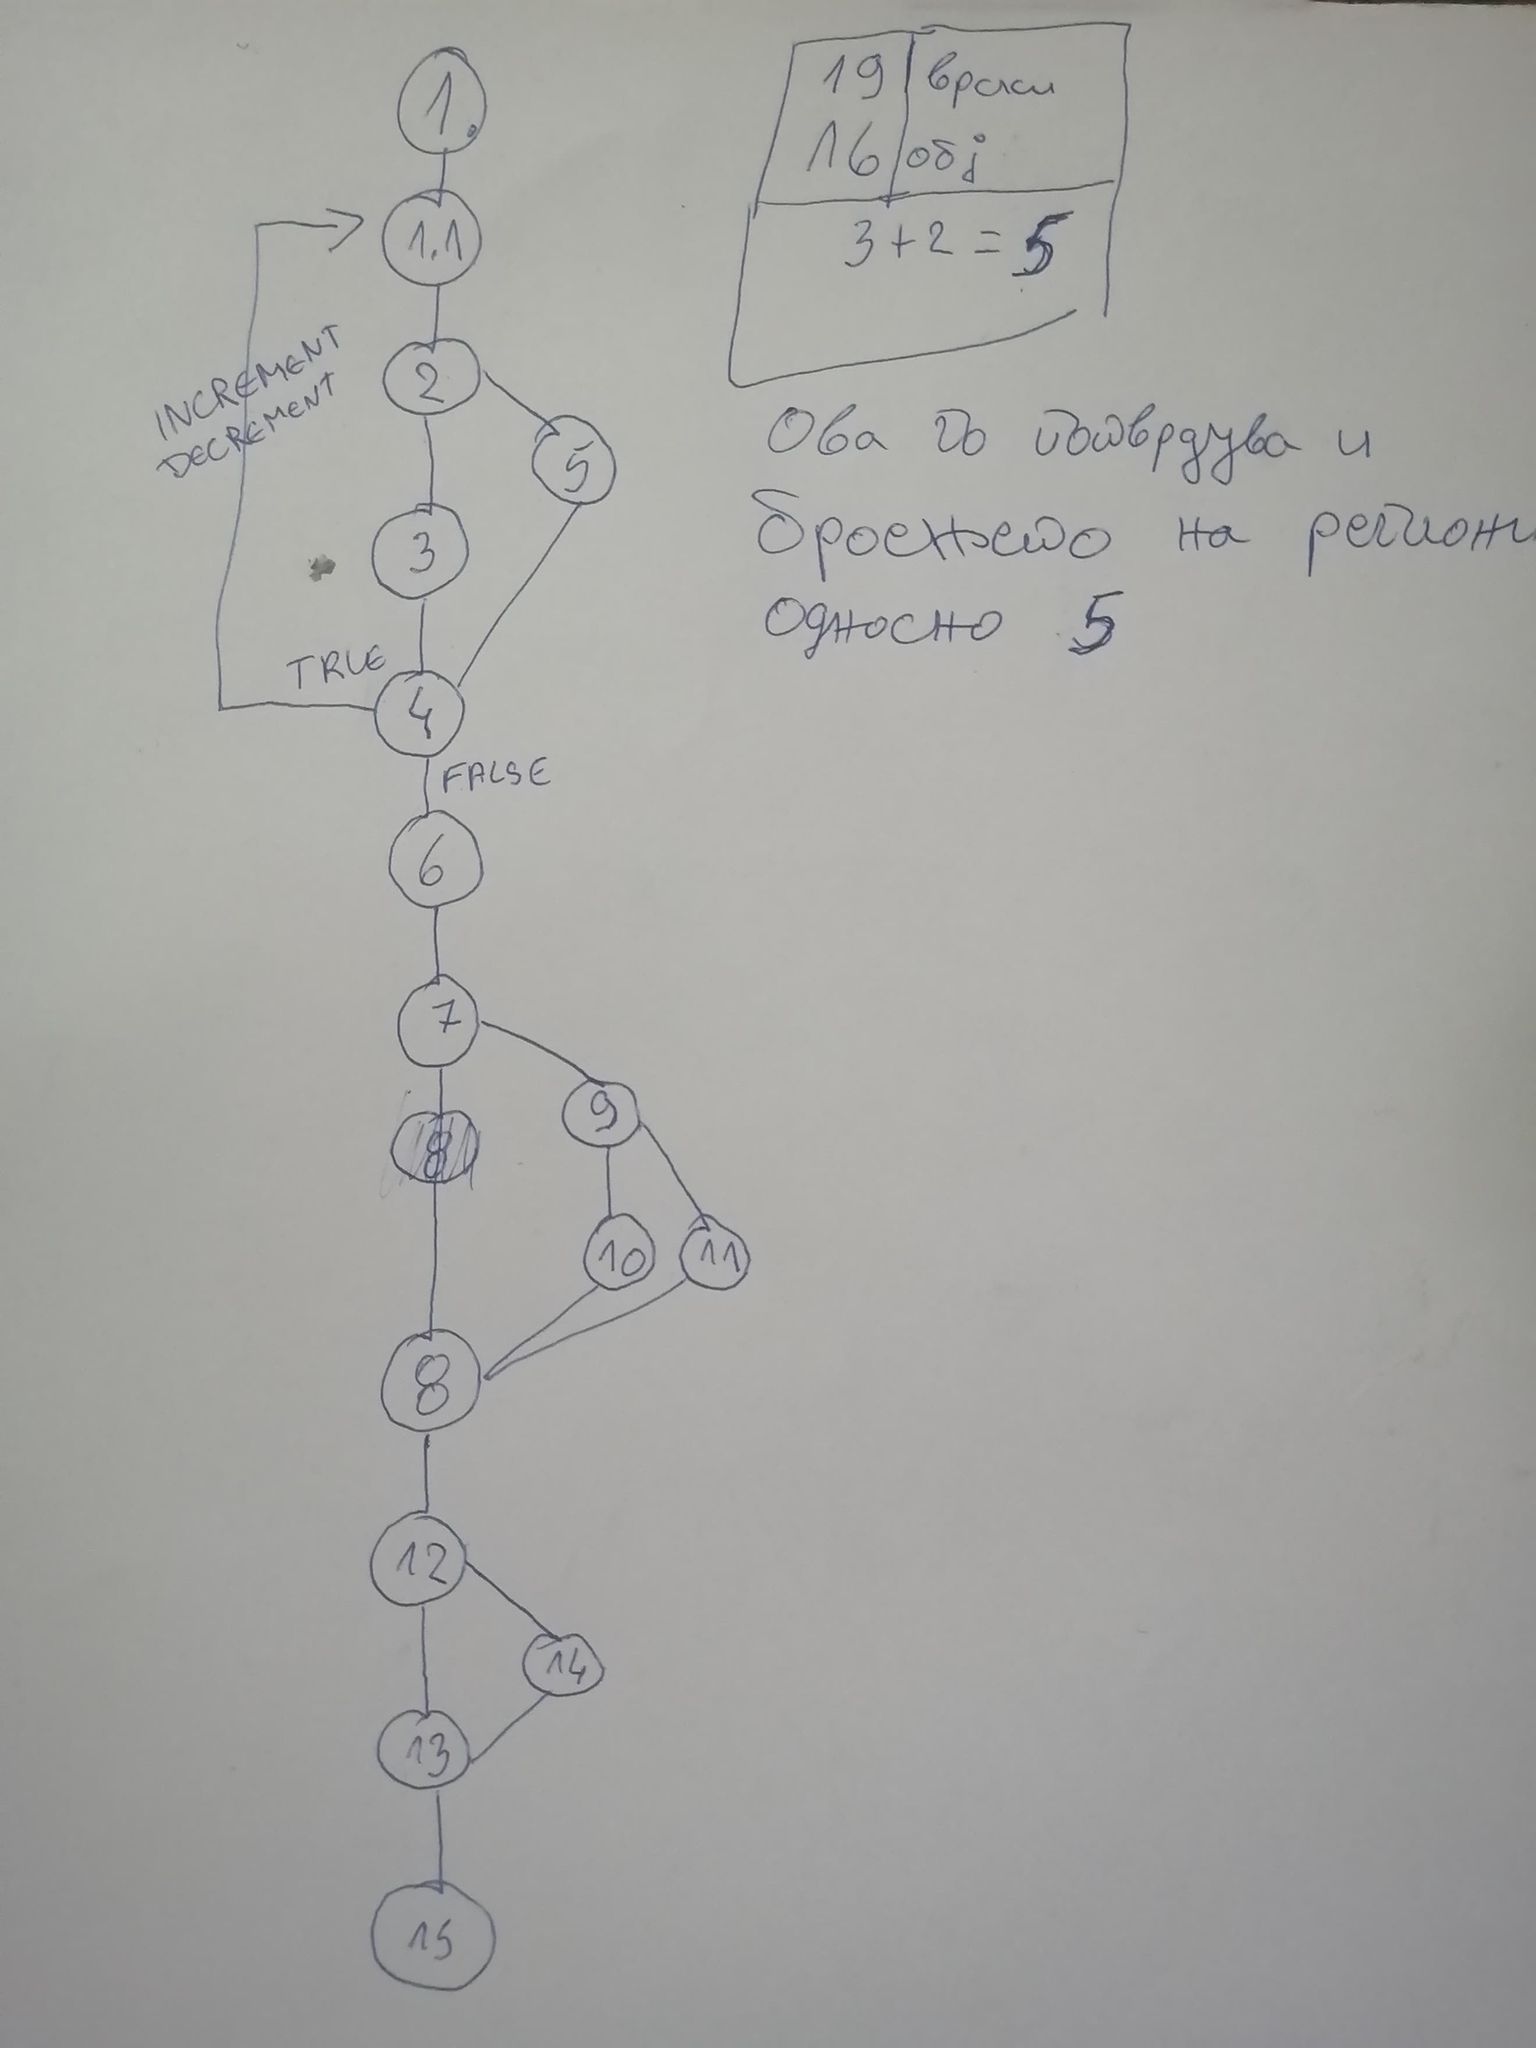 1.
1.1
INCREMENT
DECREMENT
2
5
3
TRUE
4
FALSE
6
7
8
9
10
11
8
12
14
13
15
19 врски
16 обј
3+2=5
Ова го потврдува и
броењето на региони
односно 5